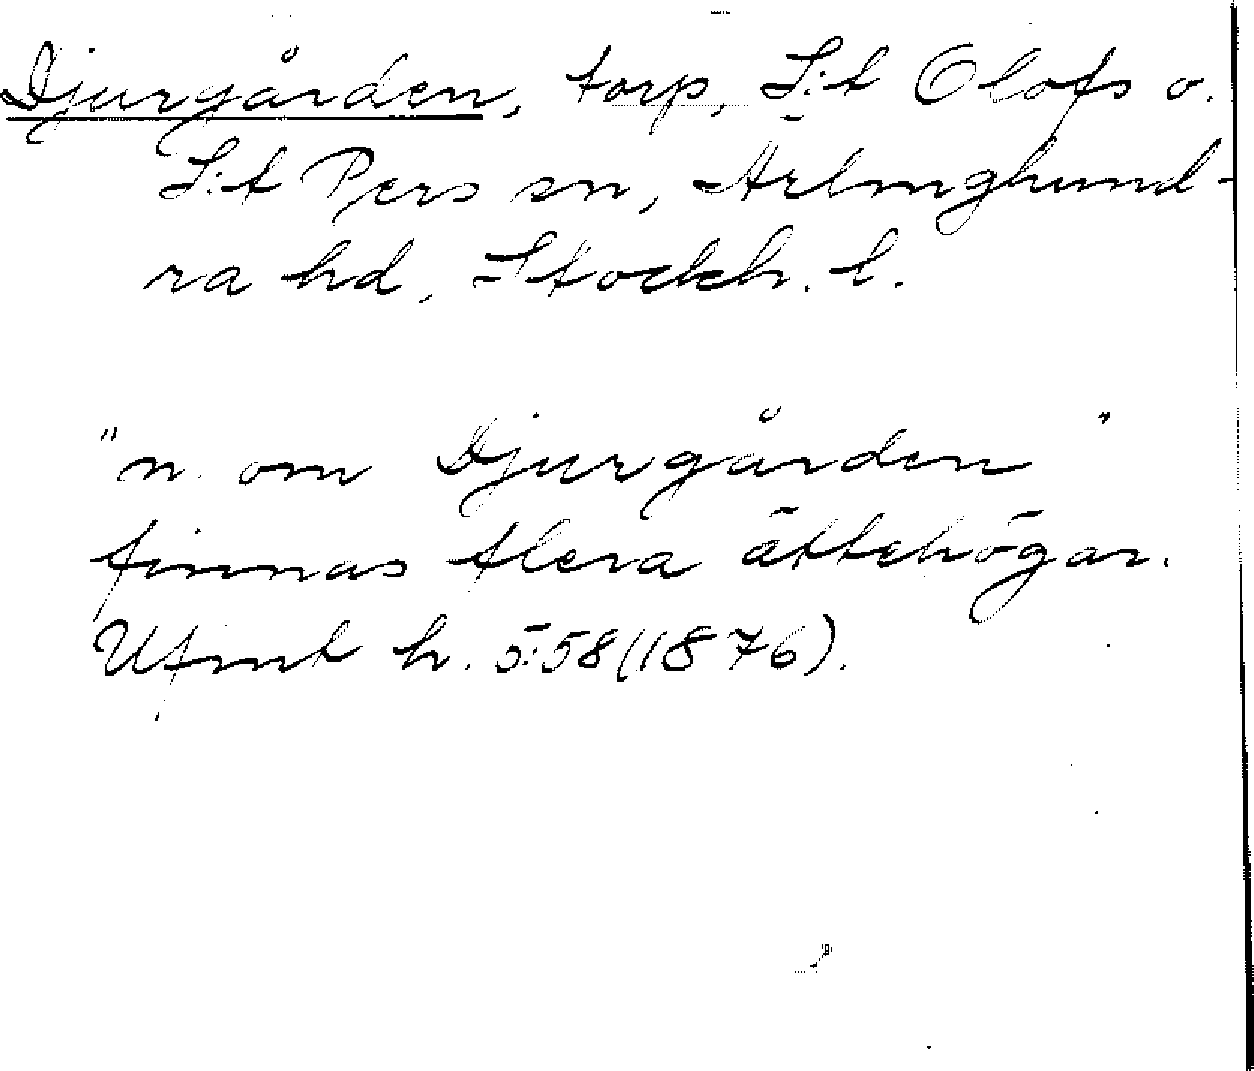 Djurgården, torp, S:t Olofs o.
S:t Pers sn, Ärlinghund-
ra hd, Stockh. l.
"n. om Djurgården"
finnas flera ättehögar.
Ufmt h. 5:58 (1876).